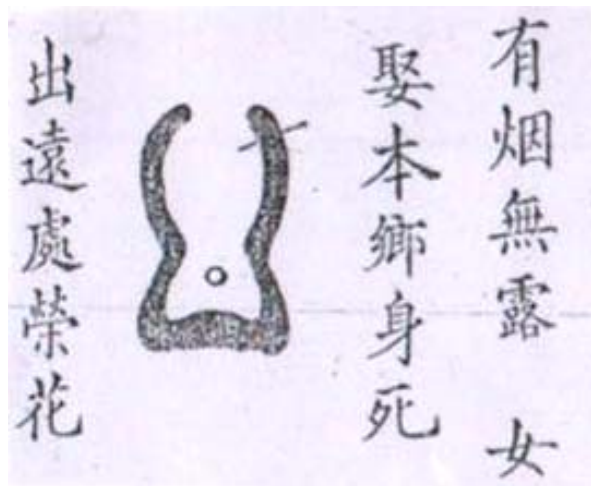 有烟無露　女
娶本鄉身死
出遠處榮花